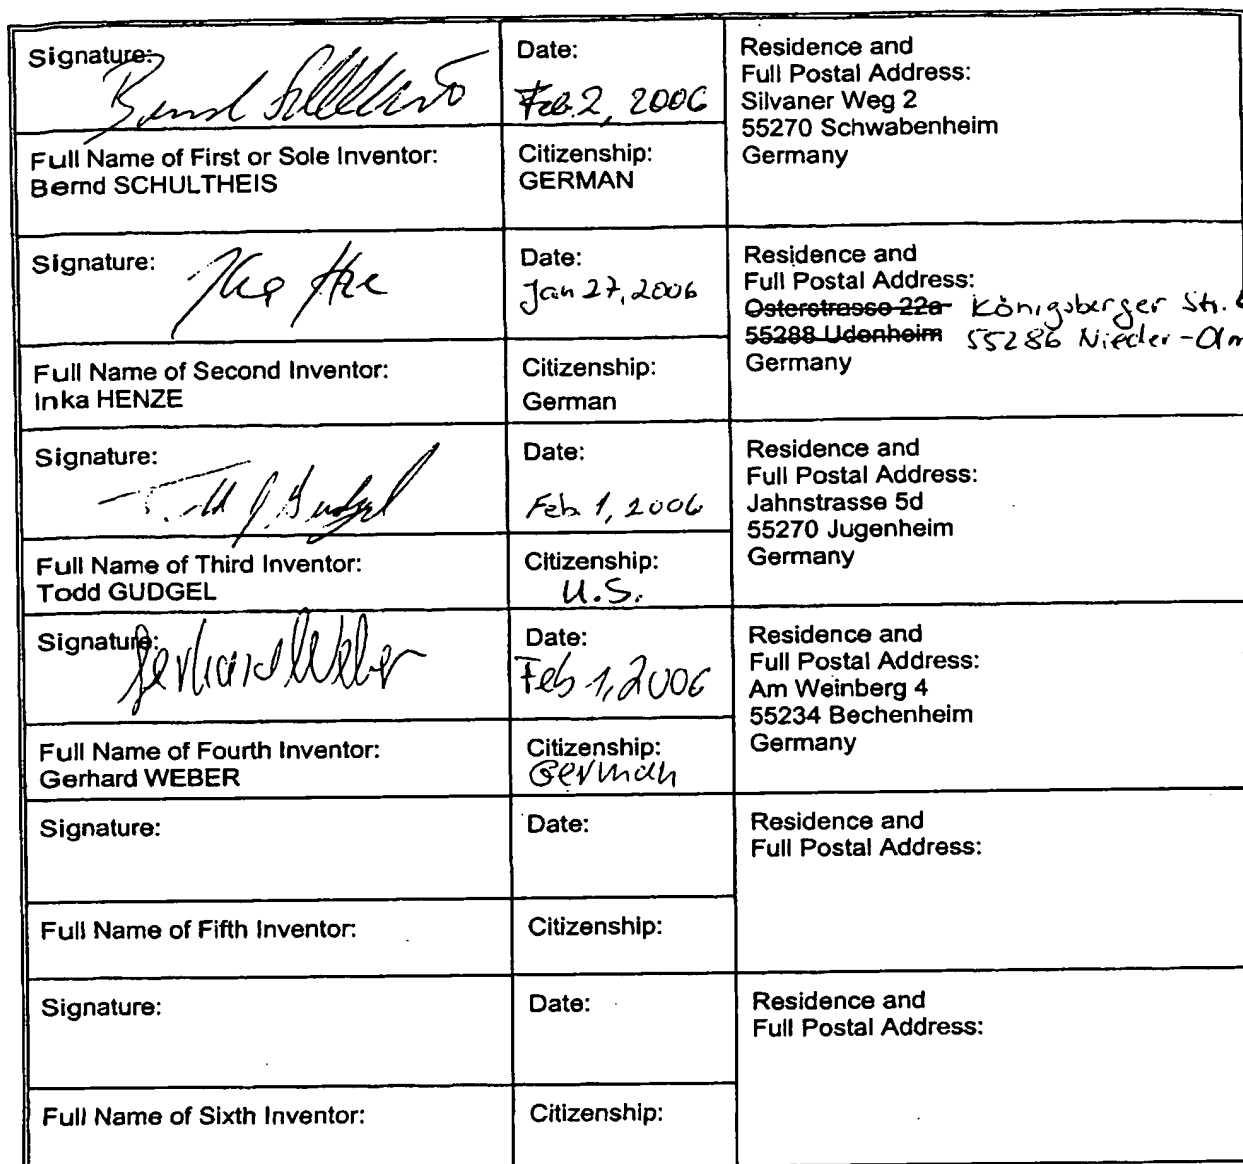 Signature:
Bernd Schultheis
Date:
Feb. 2, 2006
Residence and
Full Postal Address:
Silvaner Weg 2
55270 Schwabenheim
Germany
Full Name of First or Sole Inventor:
Bernd SCHULTHEIS
Citizenship:
GERMAN
Signature:
Date:
Jan 27, 2006
Residence and
Full Postal Address:
Osterstrasse 22a Königsberger Str.
55288 Udenheim 55286 Nieder-Olm
Germany
Full Name of Second Inventor:
Inka HENZE
Citizenship:
German
Signature:
Todd J Gudgel
Date:
Feb 1, 2006
Residence and
Full Postal Address:
Jahnstrasse 5d
55270 Jugenheim
Germany
Full Name of Third Inventor:
Todd GUDGEL
Citizenship:
U.S.
Signature:
Gerhard Weber
Date:
Feb 1, 2006
Residence and
Full Postal Address:
Am Weinberg 4
55234 Bechenheim
Germany
Full Name of Fourth Inventor:
Gerhard WEBER
Citizenship:
German
Signature:
Date:
Residence and
Full Postal Address:
Full Name of Fifth Inventor:
Citizenship:
Signature:
Date:
Residence and
Full Postal Address:
Full Name of Sixth Inventor:
Citizenship: